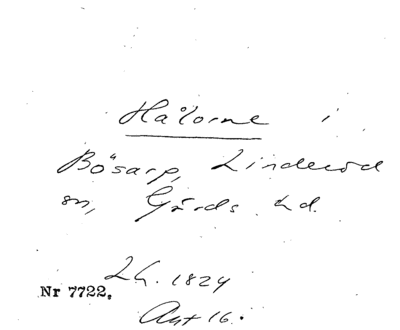 Hålorne i
Bösarp, Linderöd
sn, Gärds hd.
Lh. 1824
Nr 7722.
Akt 16.